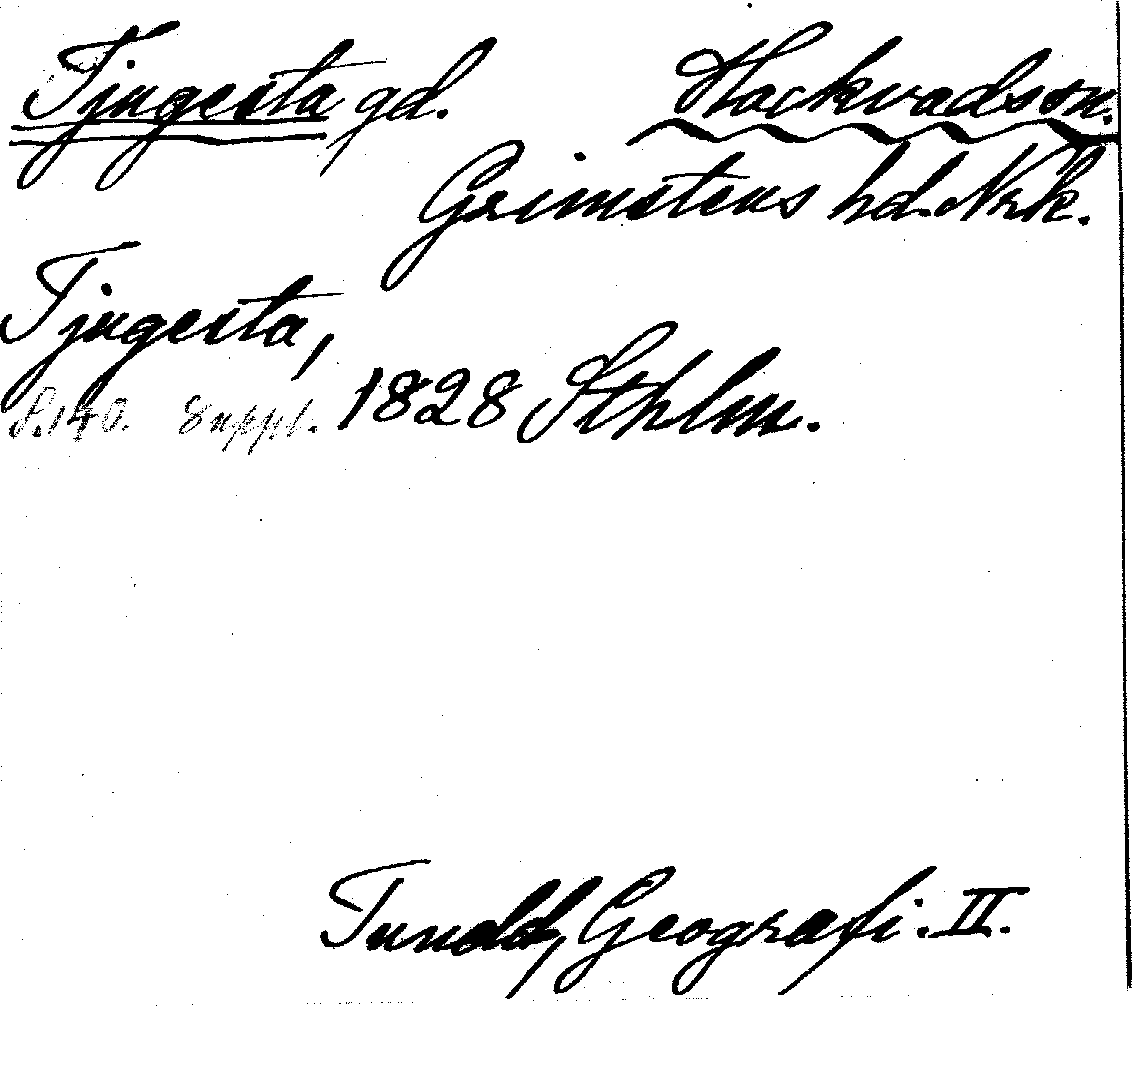 Tjugesta gd. Hackvads sn.
Grimstens hd. Nrk.
Tjugesta,
S.140. Suppl. 1828 Sthlm.
Tunald, Geografi. II.